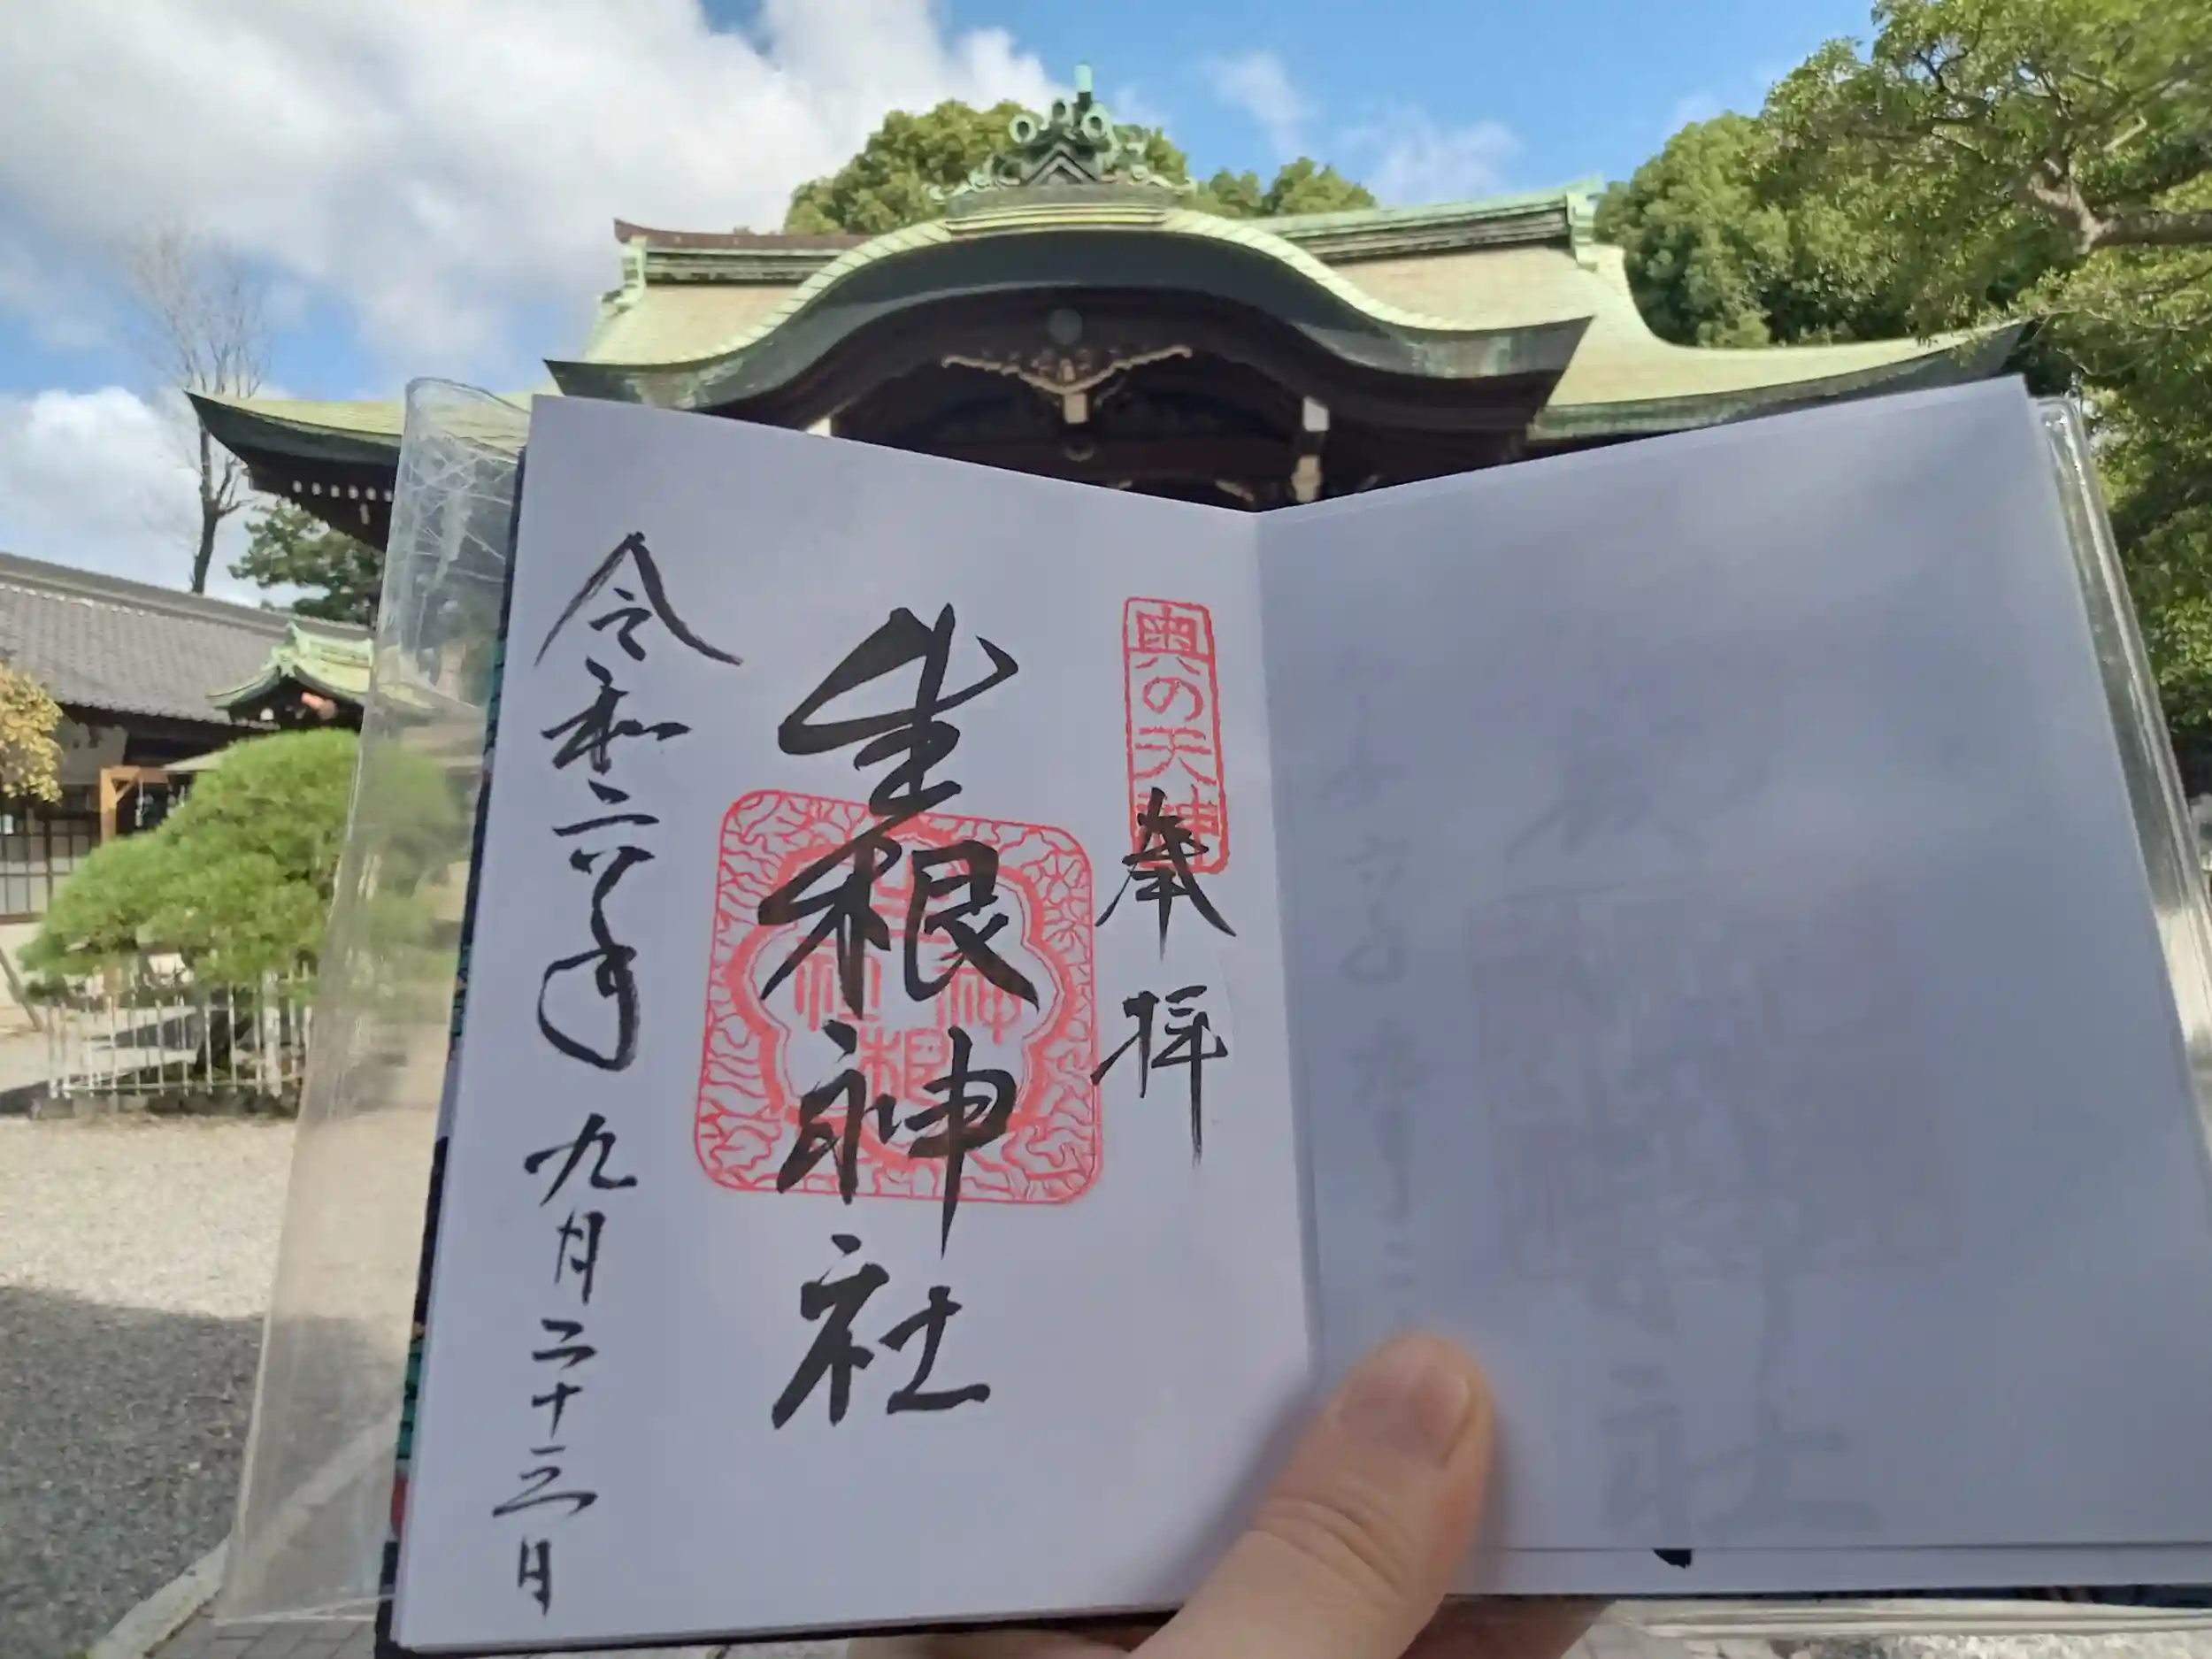 奥の天神
奉拝
生根神社
生根神社
令和六年 九月二十三日